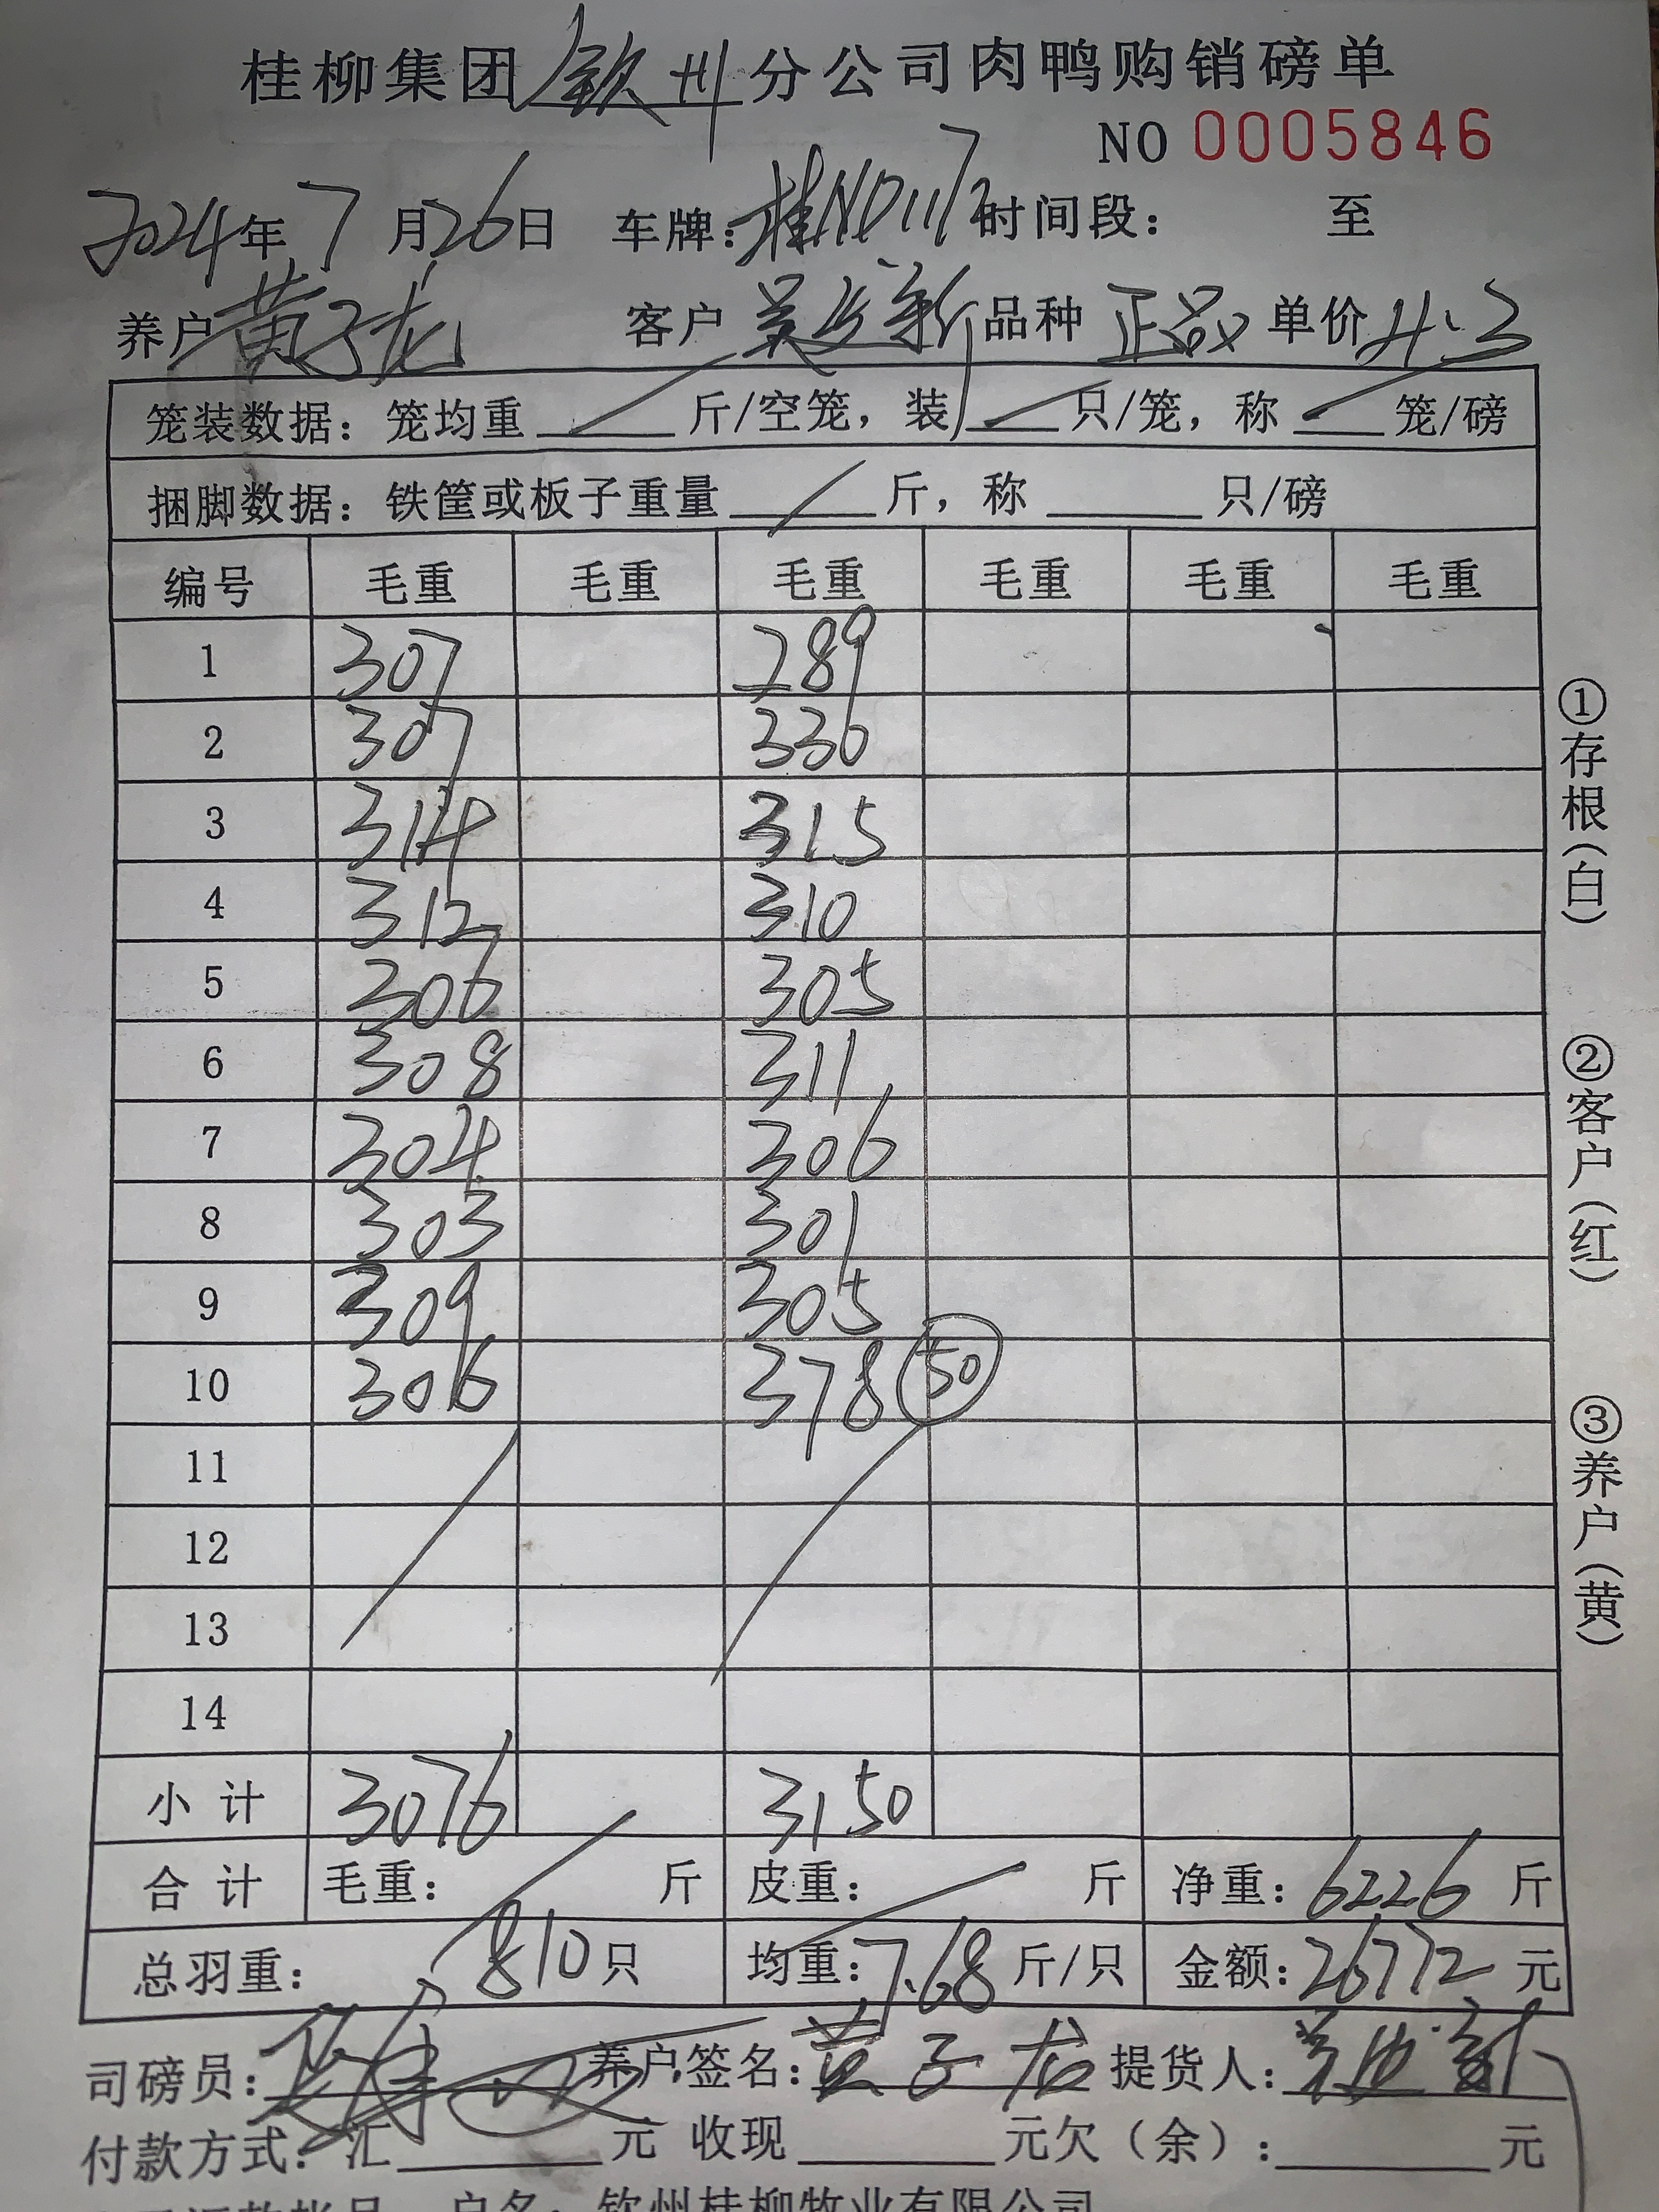 桂柳集团钦州分公司肉鸭购销磅单
NO 0005846
2024年7月26日 车牌:桂ND1117 时间段: 至
养户 黄子龙 客户 新 品种 正品 单价 4.3
笼装数据:笼均重 斤/空笼,装 只/笼,称 笼/磅
捆脚数据:铁筐或板子重量 斤,称 只/磅
编号 毛重 毛重 毛重 毛重 毛重 毛重
1 307 289
2 307 330
3 314 315
4 312 310
5 306 305
6 308 311
7 304 306
8 303 301
9 309 305
10 306 378 50
11
12
13
14
小计 3076 3150
合计 毛重: 斤 皮重: 斤 净重:6226 斤
总羽重: 810只 均重:7.68斤/只 金额:26772元
司磅员: 养户签名:黄子龙 提货人:
付款方式:汇 元 收现 元欠(余): 元
户名:钦州桂柳牧业有限公司
①存根(白)
②客户(红)
③养户(黄)